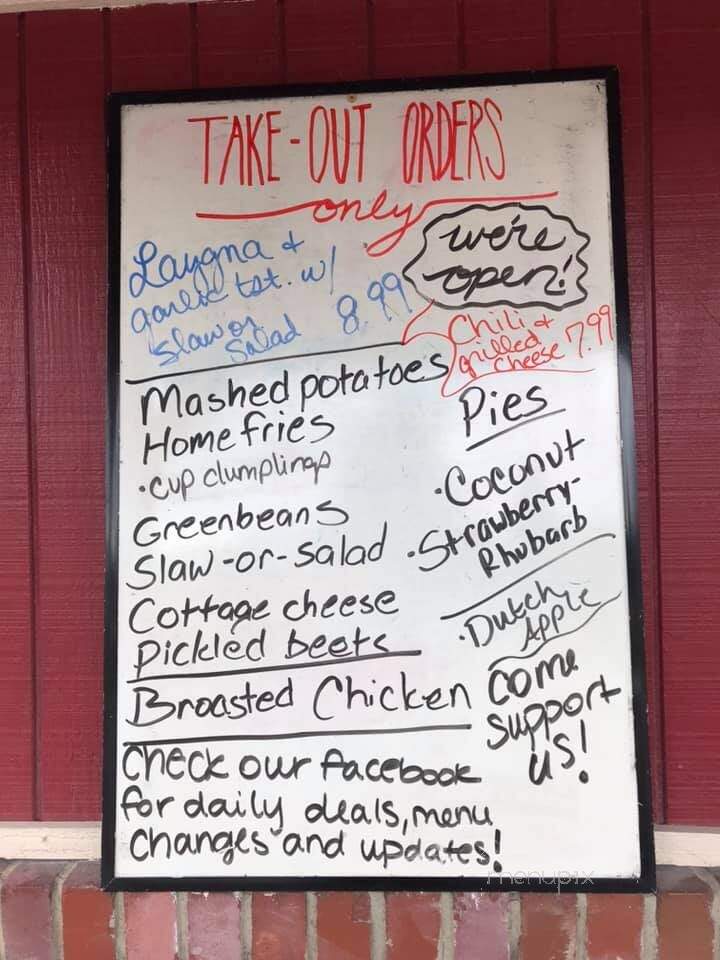 TAKE-OUT ORDERS
only
we're
open!
Laygna +
garlic tst. w/
slaw or
Salad 8.99
Chili +
grilled
cheese 7.99
Mashed potatoes
Home fries
• cup dumplings
Greenbeans
Slaw-or-Salad
Cottage cheese
Pickled beets
Broasted Chicken
Pies
• Coconut
• Strawberry-
Rhubarb
• Dutch
Apple
Come
support
us!
Check our facebook
for daily deals, menu
changes and updates!
menupix